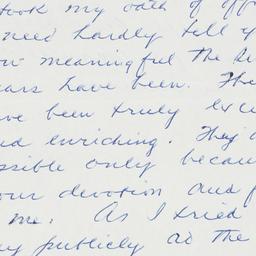 took my oath of off
need hardly tell y
ow meaningful the
ears have been. The
ve been truly exc
nd enriching. They
ssible only becau
our devotion and f
me. As I tried
ay publicly at the